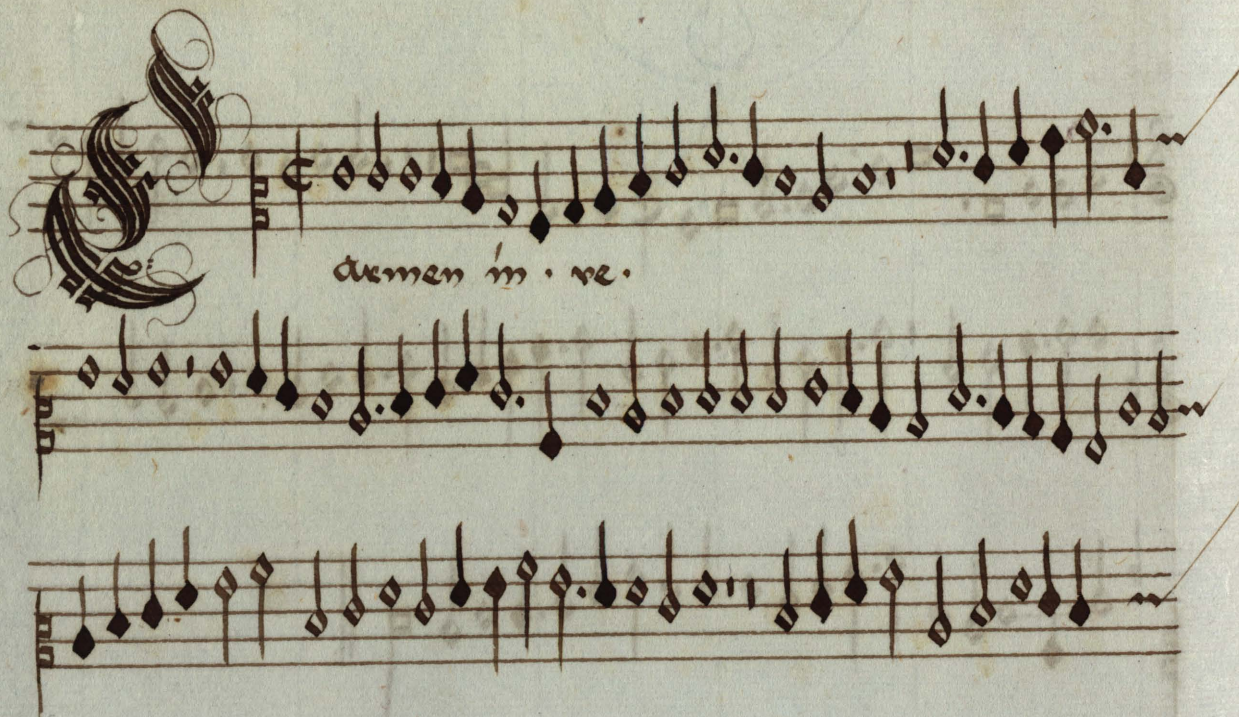 Carmen in · re ·